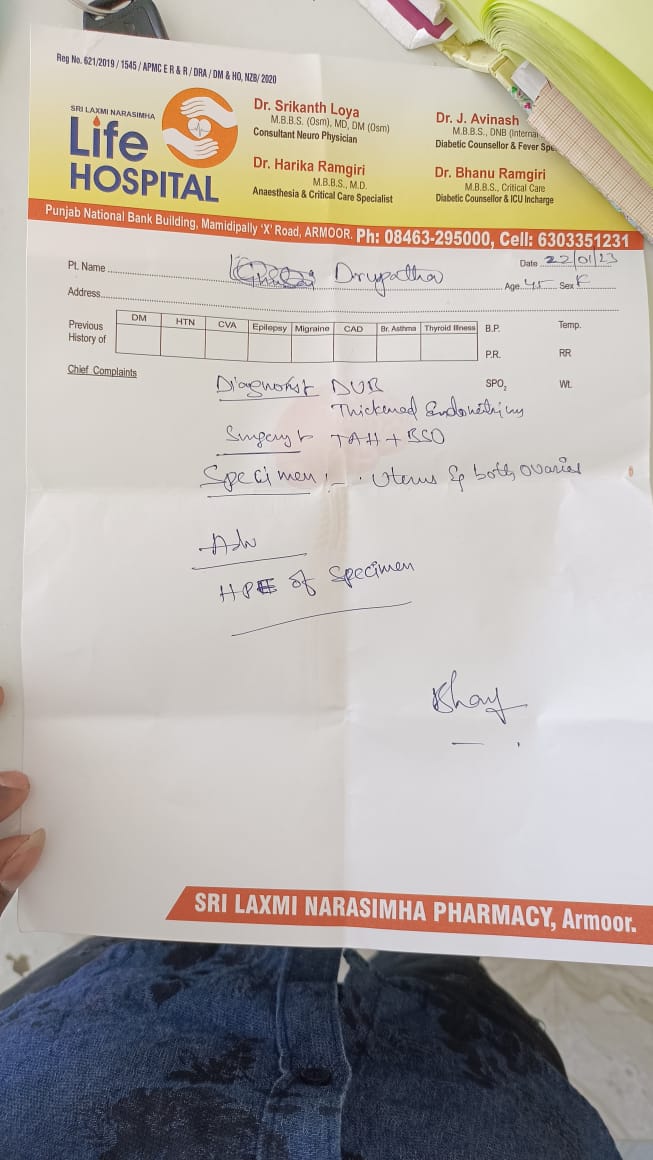 Reg No. 621/2019 / 1545 / APMC E R & R / DRA / DM & HO, NZB/ 2020
SRI LAXMI NARASIMHA
Life
HOSPITAL
Dr. Srikanth Loya
M.B.B.S. (Osm), MD, DM (Osm)
Consultant Neuro Physician
Dr. Harika Ramgiri
M.B.B.S., M.D.
Anaesthesia & Critical Care Specialist
Dr. J. Avinash
M.B.B.S., DNB (Interna
Diabetic Counsellor & Fever Spe
Dr. Bhanu Ramgiri
M.B.B.S., Critical Care
Diabetic Counsellor & ICU Incharge
Punjab National Bank Building, Mamidipally 'X' Road, ARMOOR. Ph: 08463-295000, Cell: 6303351231
Pt. Name Drupatha Date 22/01/23
Address Age 45 Sex F
Previous History of DM HTN CVA Epilepsy Migraine CAD Br. Asthma Thyroid Illness B.P. Temp.
P.R. RR
Chief Complaints SPO2 Wt.
DUB
Thickened
Surgery TAH + BSO
Specimen :- Uterus & both ovaries
Adv
HPE of Specimen
SRI LAXMI NARASIMHA PHARMACY, Armoor.